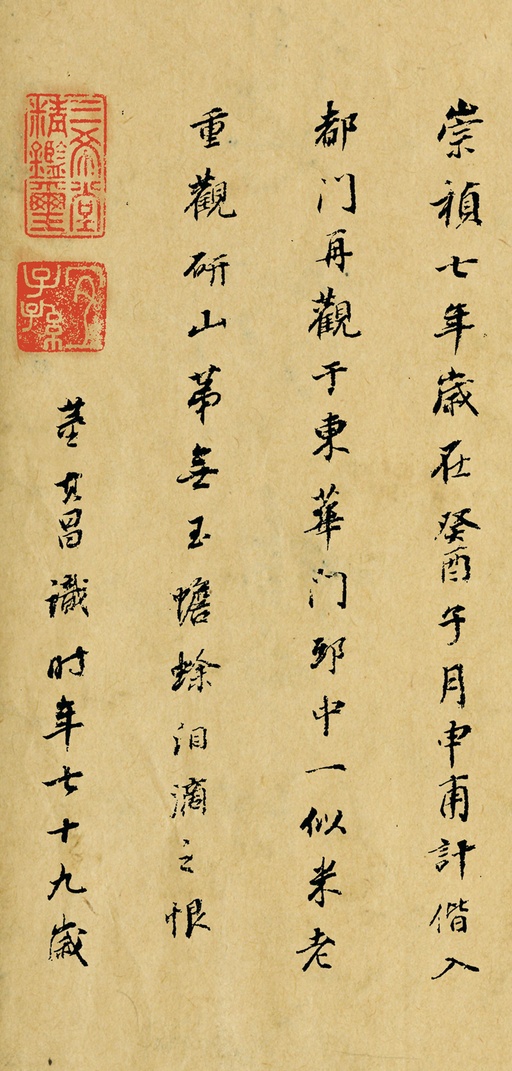 崇禎七年歲在癸酉子月申甫計偕入
都門再觀于東華門邸中一似米老
重觀研山第無玉蟾蜍泪滴之恨
董其昌識時年七十九歲
三希堂精鑑璽
宜子孫